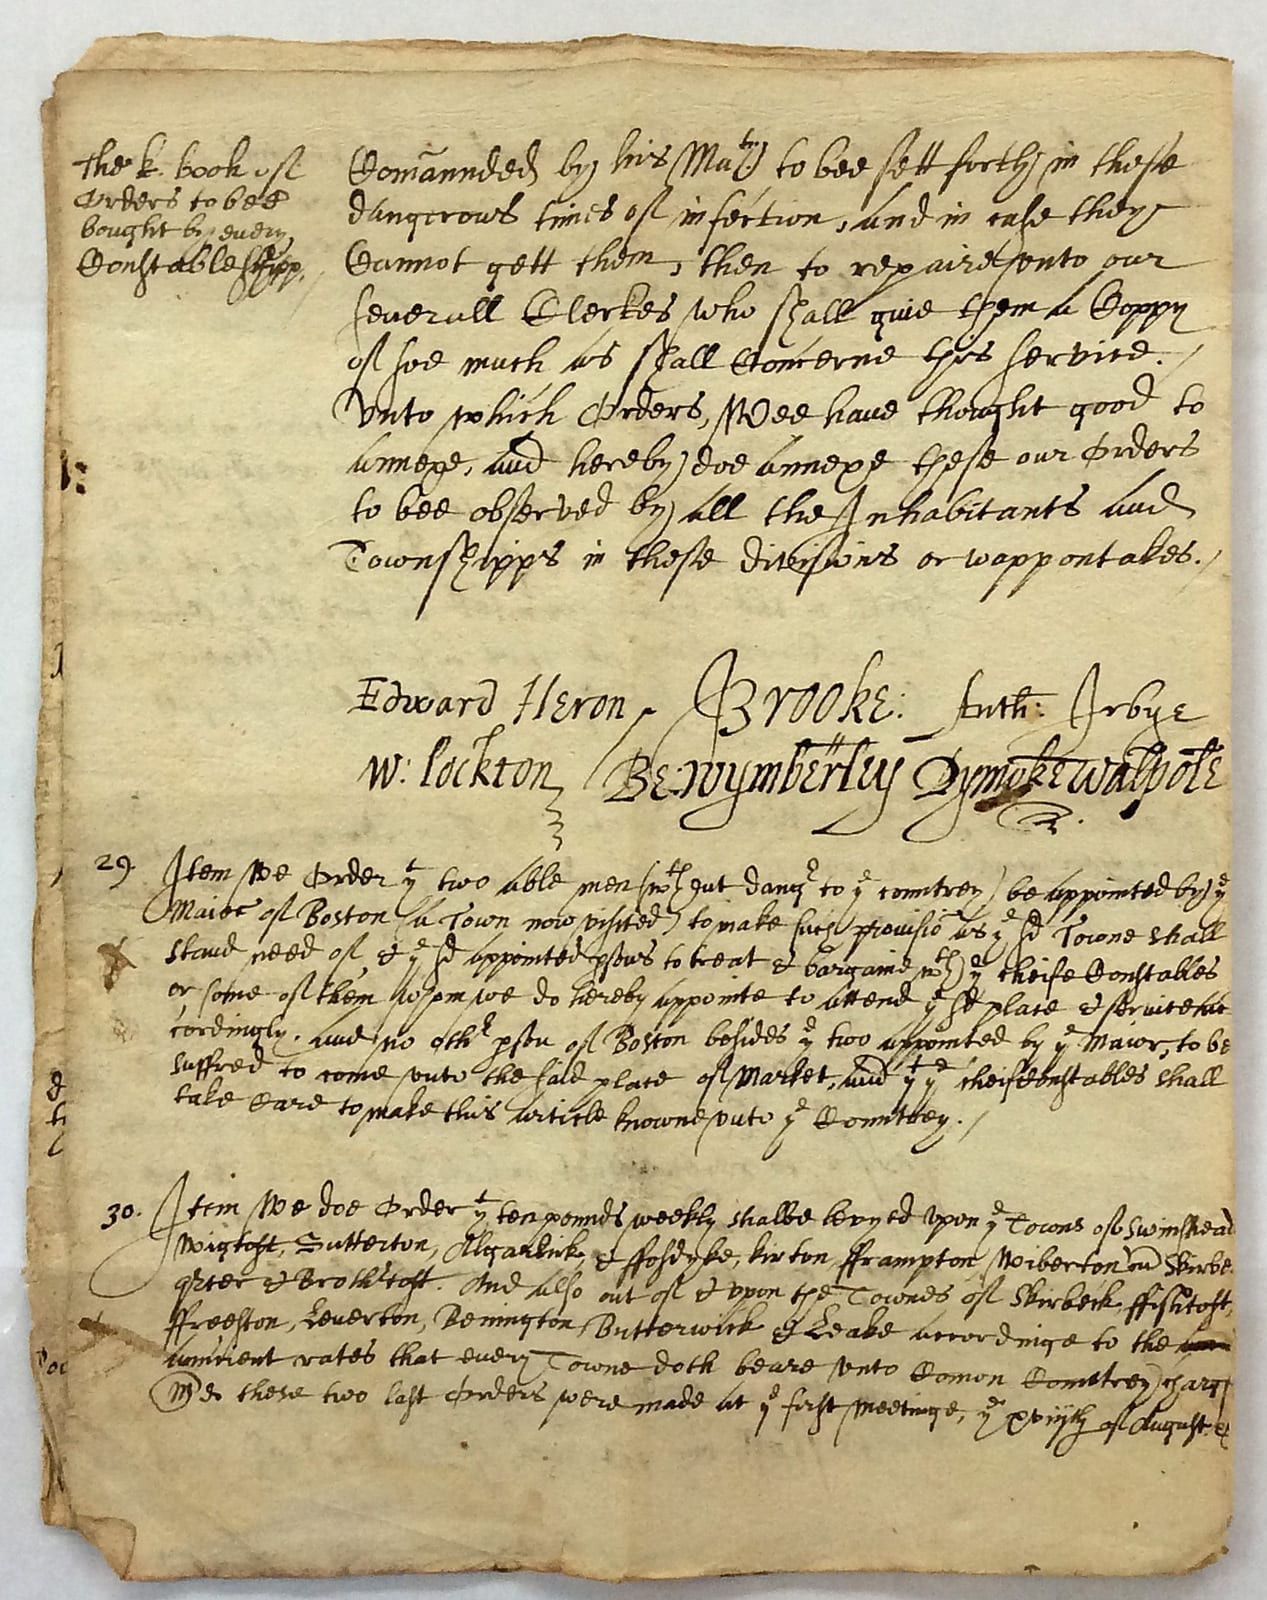 the k. book of
Orders to bee
bought by every
Constableshipp,
Comānnded by his Ma:ty to bee sett forth in these
dangerows times of infection, and in case they
Cannot gett them, then to repaire vnto our
severall Clerkes who shall giue them a Coppy
of soe much as shall Concerne this service.
Vnto which Orders, Wee haue thought good to
annexe, and hereby doe annexe these our Orders
to bee observed by all the Inhabitants and
Townshipps in these divisions or wappontakes.
Edward Heron Brooke: Anth: Irbye
W: lockton Be: wymberley Dymoke walpole
29. Item We Order yt two able men (wthout dangr to ye countrey) be appointed by ye
Maior of Boston (a Town now visited) to make such provisiō as ye sd Towne shall
stand need of & ye sd appointed psons to treat & bargaine wth ye cheife Constables
or some of them whom we do hereby appointe to attend ye sd place & service ac
cordingly. And no othr pson of Boston besides ye two appointed by ye Maior, to be
suffred to come vnto the said place of Market, and yt ye cheife constables shall
take Care to make this article knowne vnto ye Countrey.
30. Item We doe Order yt ten pounds weekly shalbe levyed vpon ye Towns of Swinshead
Wigtoft, Sutterton, Algarkirk, & ffosdyke, kirton, fframpton, Wiberton and Skirbe
qrter & Brothrtoft. And also out of & vpon the Townes of Skirbeck, ffishtoft,
ffreeston, Leuerton, Benington, Butterwick & Leake accordinge to the
auncient rates that every Towne doth beare vnto Comon Countrey charg
Md. these two last Orders were made at ye first meetinge, ye xviijth of August. &